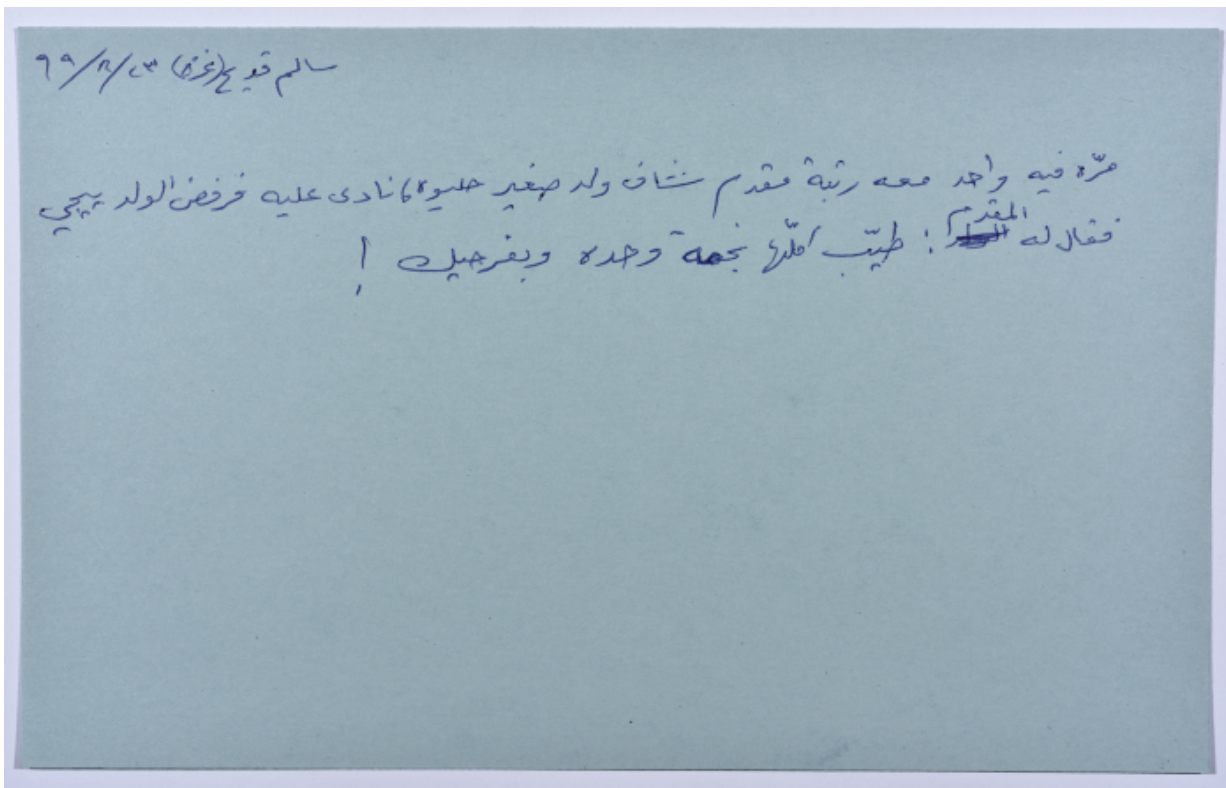 سالم قويع (غزة) ٢٣/٨/٩٩
مرّه فيه واحد معه رتبة مقدم شاف ولد صغير حليوه، نادى عليه فرفض الولد ييجي
فقال له المقدم: طيّب اقلّها نجمة وحده وبفرجيك!